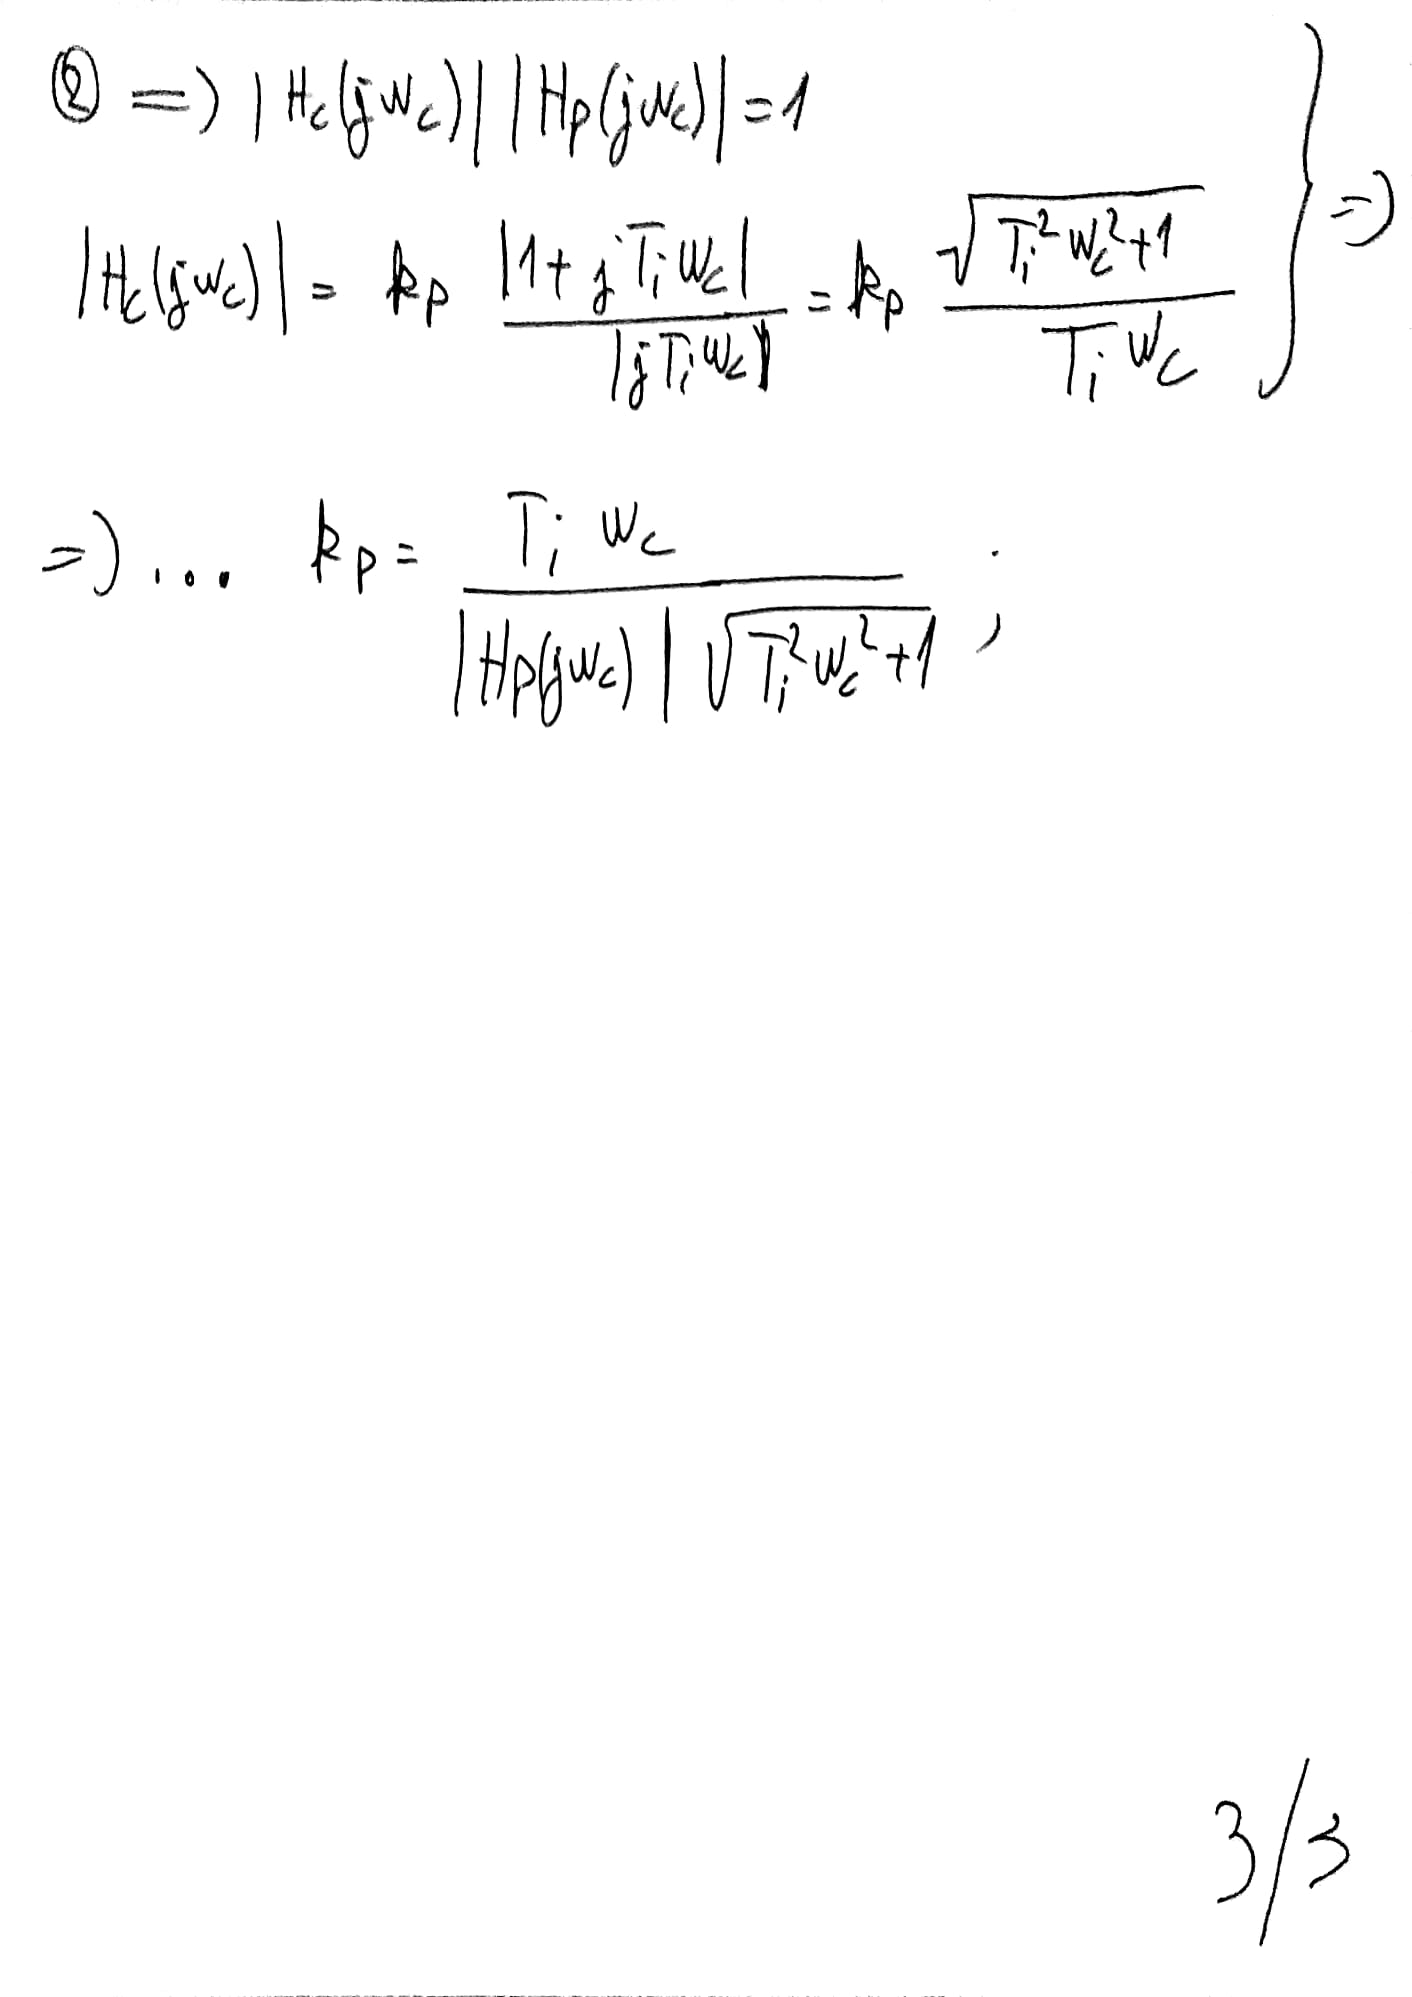 ② => |Hc(jwc)| |Hp(jwc)| = 1
|Hc(jwc)| = kp |1 + jTiwc| / |jTiwc| = kp √(Ti²wc²+1) / Tiwc } =>
=> ... kp = Tiwc / |Hp(jwc)| √(Ti²wc²+1) ;
3/3